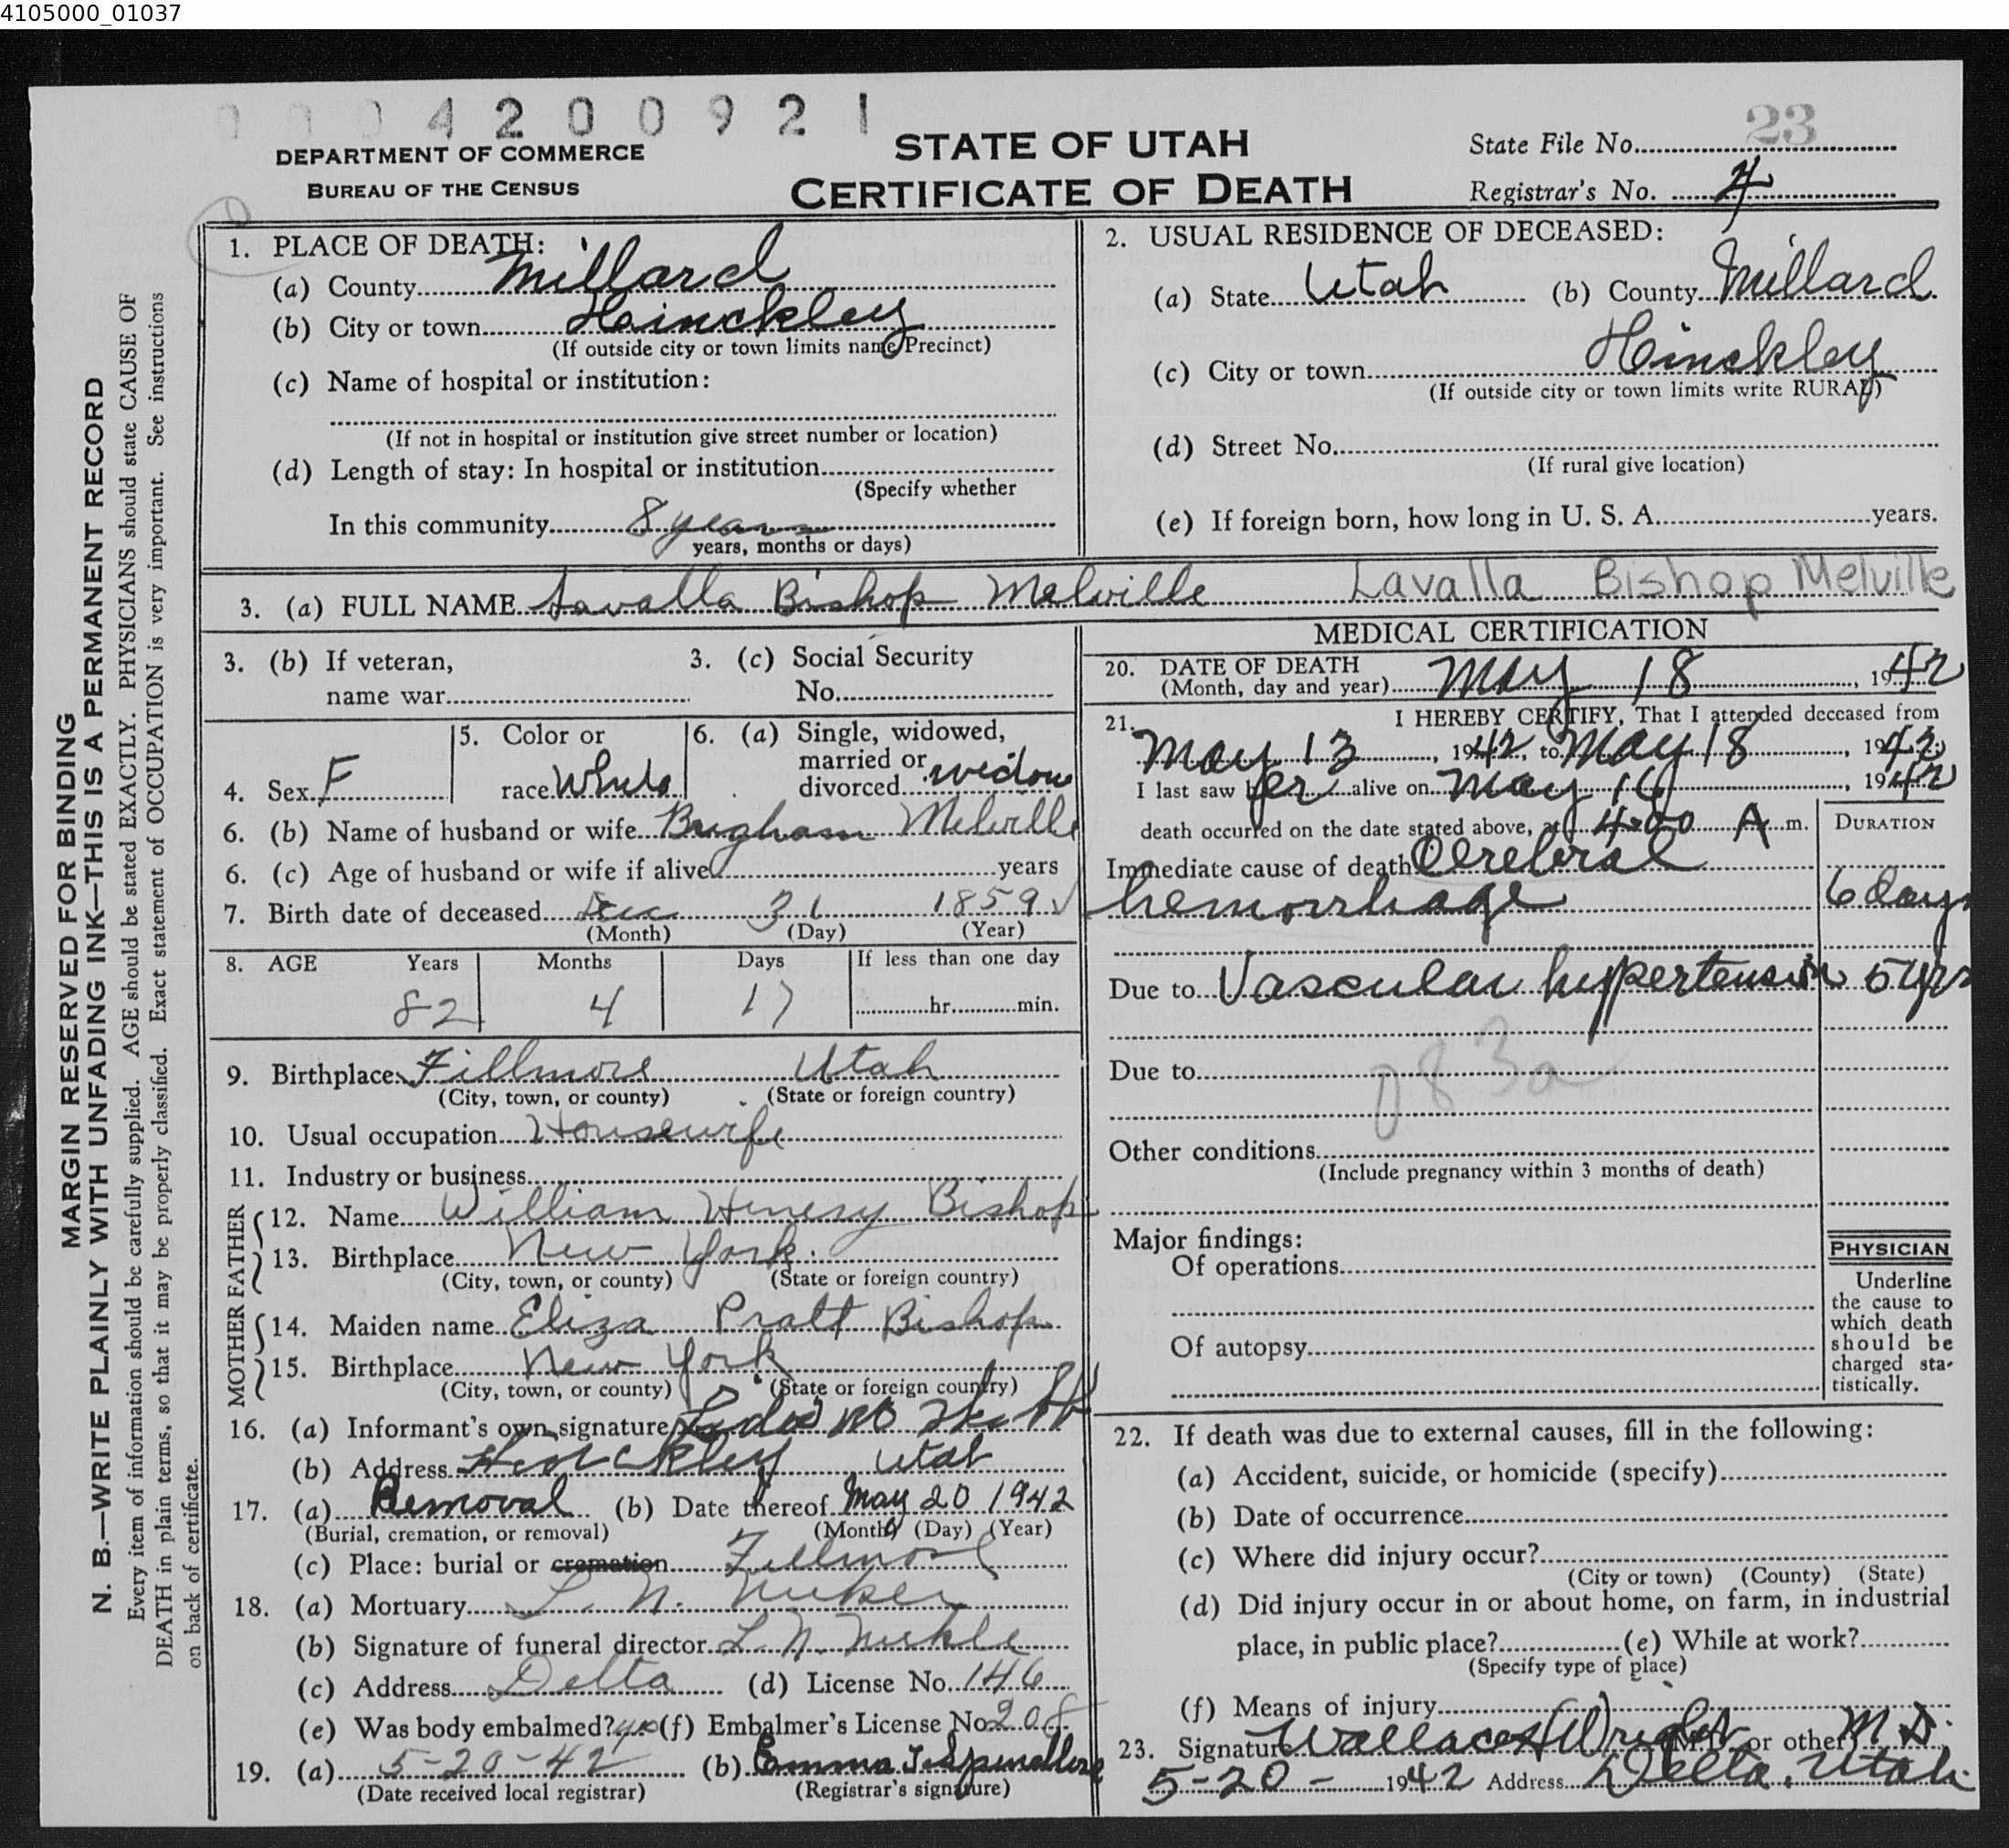 4105000_01037
0004200921
DEPARTMENT OF COMMERCE
BUREAU OF THE CENSUS
STATE OF UTAH
CERTIFICATE OF DEATH
State File No. 23
Registrar's No. 4
MARGIN RESERVED FOR BINDING
N. B.—WRITE PLAINLY WITH UNFADING INK—THIS IS A PERMANENT RECORD
Every item of information should be carefully supplied. AGE should be stated EXACTLY. PHYSICIANS should state CAUSE OF
DEATH in plain terms, so that it may be properly classified. Exact statement of OCCUPATION is very important. See instructions
on back of certificate.
1. PLACE OF DEATH:
(a) County Millard
(b) City or town Hinckley
(If outside city or town limits name Precinct)
(c) Name of hospital or institution:
(If not in hospital or institution give street number or location)
(d) Length of stay: In hospital or institution
(Specify whether
In this community 8 years
years, months or days)
2. USUAL RESIDENCE OF DECEASED:
(a) State Utah (b) County Millard
(c) City or town Hinckley
(If outside city or town limits write RURAL)
(d) Street No.
(If rural give location)
(e) If foreign born, how long in U. S. A. years.
3. (a) FULL NAME Lavalla Bishop Melville Lavalla Bishop Melville
3. (b) If veteran,
name war
3. (c) Social Security
No.
4. Sex F
5. Color or
race White
6. (a) Single, widowed,
married or
divorced widow
6. (b) Name of husband or wife Brigham Melville
6. (c) Age of husband or wife if alive years
7. Birth date of deceased Dec 31 1859
(Month) (Day) (Year)
8. AGE Years Months Days If less than one day
82 4 17 hr. min.
9. Birthplace Fillmore Utah
(City, town, or county) (State or foreign country)
10. Usual occupation Housewife
11. Industry or business
FATHER
12. Name William Henery Bishop
13. Birthplace New York
(City, town, or county) (State or foreign country)
MOTHER
14. Maiden name Eliza Pratt Bishop
15. Birthplace New York
(City, town, or county) (State or foreign country)
16. (a) Informant's own signature
(b) Address Hinckley Utah
17. (a) Removal (b) Date thereof May 20 1942
(Burial, cremation, or removal) (Month) (Day) (Year)
(c) Place: burial or cremation Fillmore
18. (a) Mortuary L. N.
(b) Signature of funeral director L. N.
(c) Address Delta (d) License No. 146
(e) Was body embalmed? yes (f) Embalmer's License No. 208
19. (a) 5-20-42 (b) Emma
(Date received local registrar) (Registrar's signature)
MEDICAL CERTIFICATION
20. DATE OF DEATH
(Month, day and year) May 18, 1942
21. I HEREBY CERTIFY, That I attended deceased from
May 13, 1942, to May 18, 1942
I last saw her alive on May 16, 1942
death occurred on the date stated above, at 4:00 A m.
DURATION
Immediate cause of death Cerebral
hemorrhage 6 days
Due to Vascular hypertension 5 yrs
Due to
083a
Other conditions
(Include pregnancy within 3 months of death)
Major findings:
Of operations
Of autopsy
PHYSICIAN
Underline
the cause to
which death
should be
charged sta-
tistically.
22. If death was due to external causes, fill in the following:
(a) Accident, suicide, or homicide (specify)
(b) Date of occurrence
(c) Where did injury occur?
(City or town) (County) (State)
(d) Did injury occur in or about home, on farm, in industrial
place, in public place? (e) While at work?
(Specify type of place)
(f) Means of injury
23. Signature Wallace Wright (M.D. or other) M D.
5-20- 1942 Address Delta, Utah